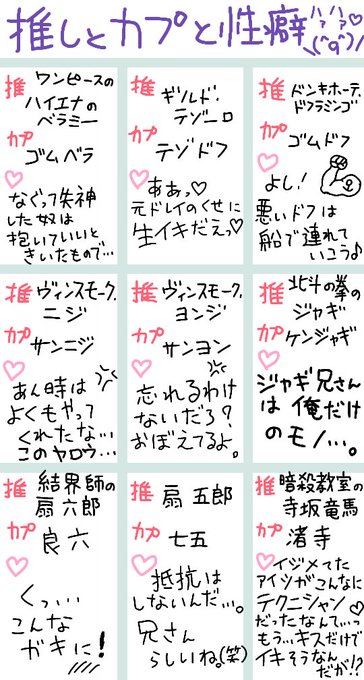 推しとカプと性癖
ハァハァ♡
\(^q^)/
推 ワンピースの
ハイエナの
ベラミー
カプ ゴムベラ
♡
なぐって失神
した奴は
抱いていいと
きいたもので…
推 ギルド・
テゾーロ
カプ テゾドフ
♡
ああっ♡
元ドレイのくせに
生イキだえっ♡
推 ドンキホーテ・
ドフラミンゴ
カプ ゴムドフ
♡ よし!
悪いドフは
船で連れて
いこう♪
推 ヴィンスモーク・
ニジ
カプ サンニジ
♡
あん時は
よくもやって
くれたな…
このヤロウ…
推 ヴィンスモーク・
ヨンジ
カプ サンヨン
♡
忘れるわけ
ないだろ?
おぼえてるよ。
推 北斗の拳の
ジャギ
カプ ケンジャギ
♡
ジャギ兄さん
は俺だけ
のモノ…。
推 結界師の
扇六郎
カプ 良六
♡
くっ…
こんな
ガキに!
推 扇 五郎
カプ 七五
♡
抵抗は
しないんだ…。
兄さん
らしいね。(笑)
推 暗殺教室の
寺坂竜馬
カプ 渚寺
♡
イジメてた
アイツがこんなに
テクニシャン♡
だったなんて…っ
もう…キスだけで
イキそうなん
だが!?